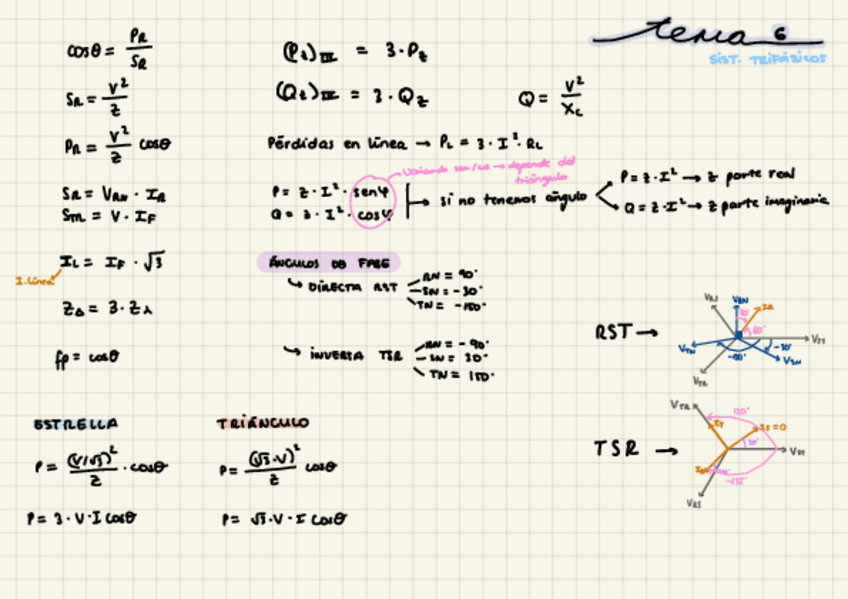 tema 6
SIST. TRIFÁSICOS
cosθ = P_R / S_R
S_R = V² / Z
P_R = V² / Z cosθ
S_R = V_RN · I_R
S_TR = V · I_F
I_L = I_F · √3
I.Línea
Z_Δ = 3 · Z_⅄
fp = cosθ
(P_t)_III = 3 · P_Z
(Q_t)_III = 3 · Q_Z
Q = V² / X_C
Pérdidas en línea → P_L = 3 · I² · R_L
→ depende del triángulo
P = Z · I² · senφ
Q = Z · I² · cosφ
→ si no tenemos ángulo
P = Z · I² → Z parte real
Q = Z · I² → Z parte imaginaria
ÁNGULOS DE FASE
DIRECTA RST
RN = 90°
SN = -30°
TN = -150°
INVERSA TSR
RN = -90°
SN = 30°
TN = 150°
RST →
V_RS
V_RN
I_R
V_ST
V_SN
-30°
V_TN
V_TR
TSR →
V_TR
I_T
I_S = 0
30°
V_ST
V_RS
ESTRELLA
P = (V/√3)² / Z · cosθ
P = 3 · V · I cosθ
TRIÁNGULO
P = (√3 · V)² / Z cosθ
P = √3 · V · I cosθ